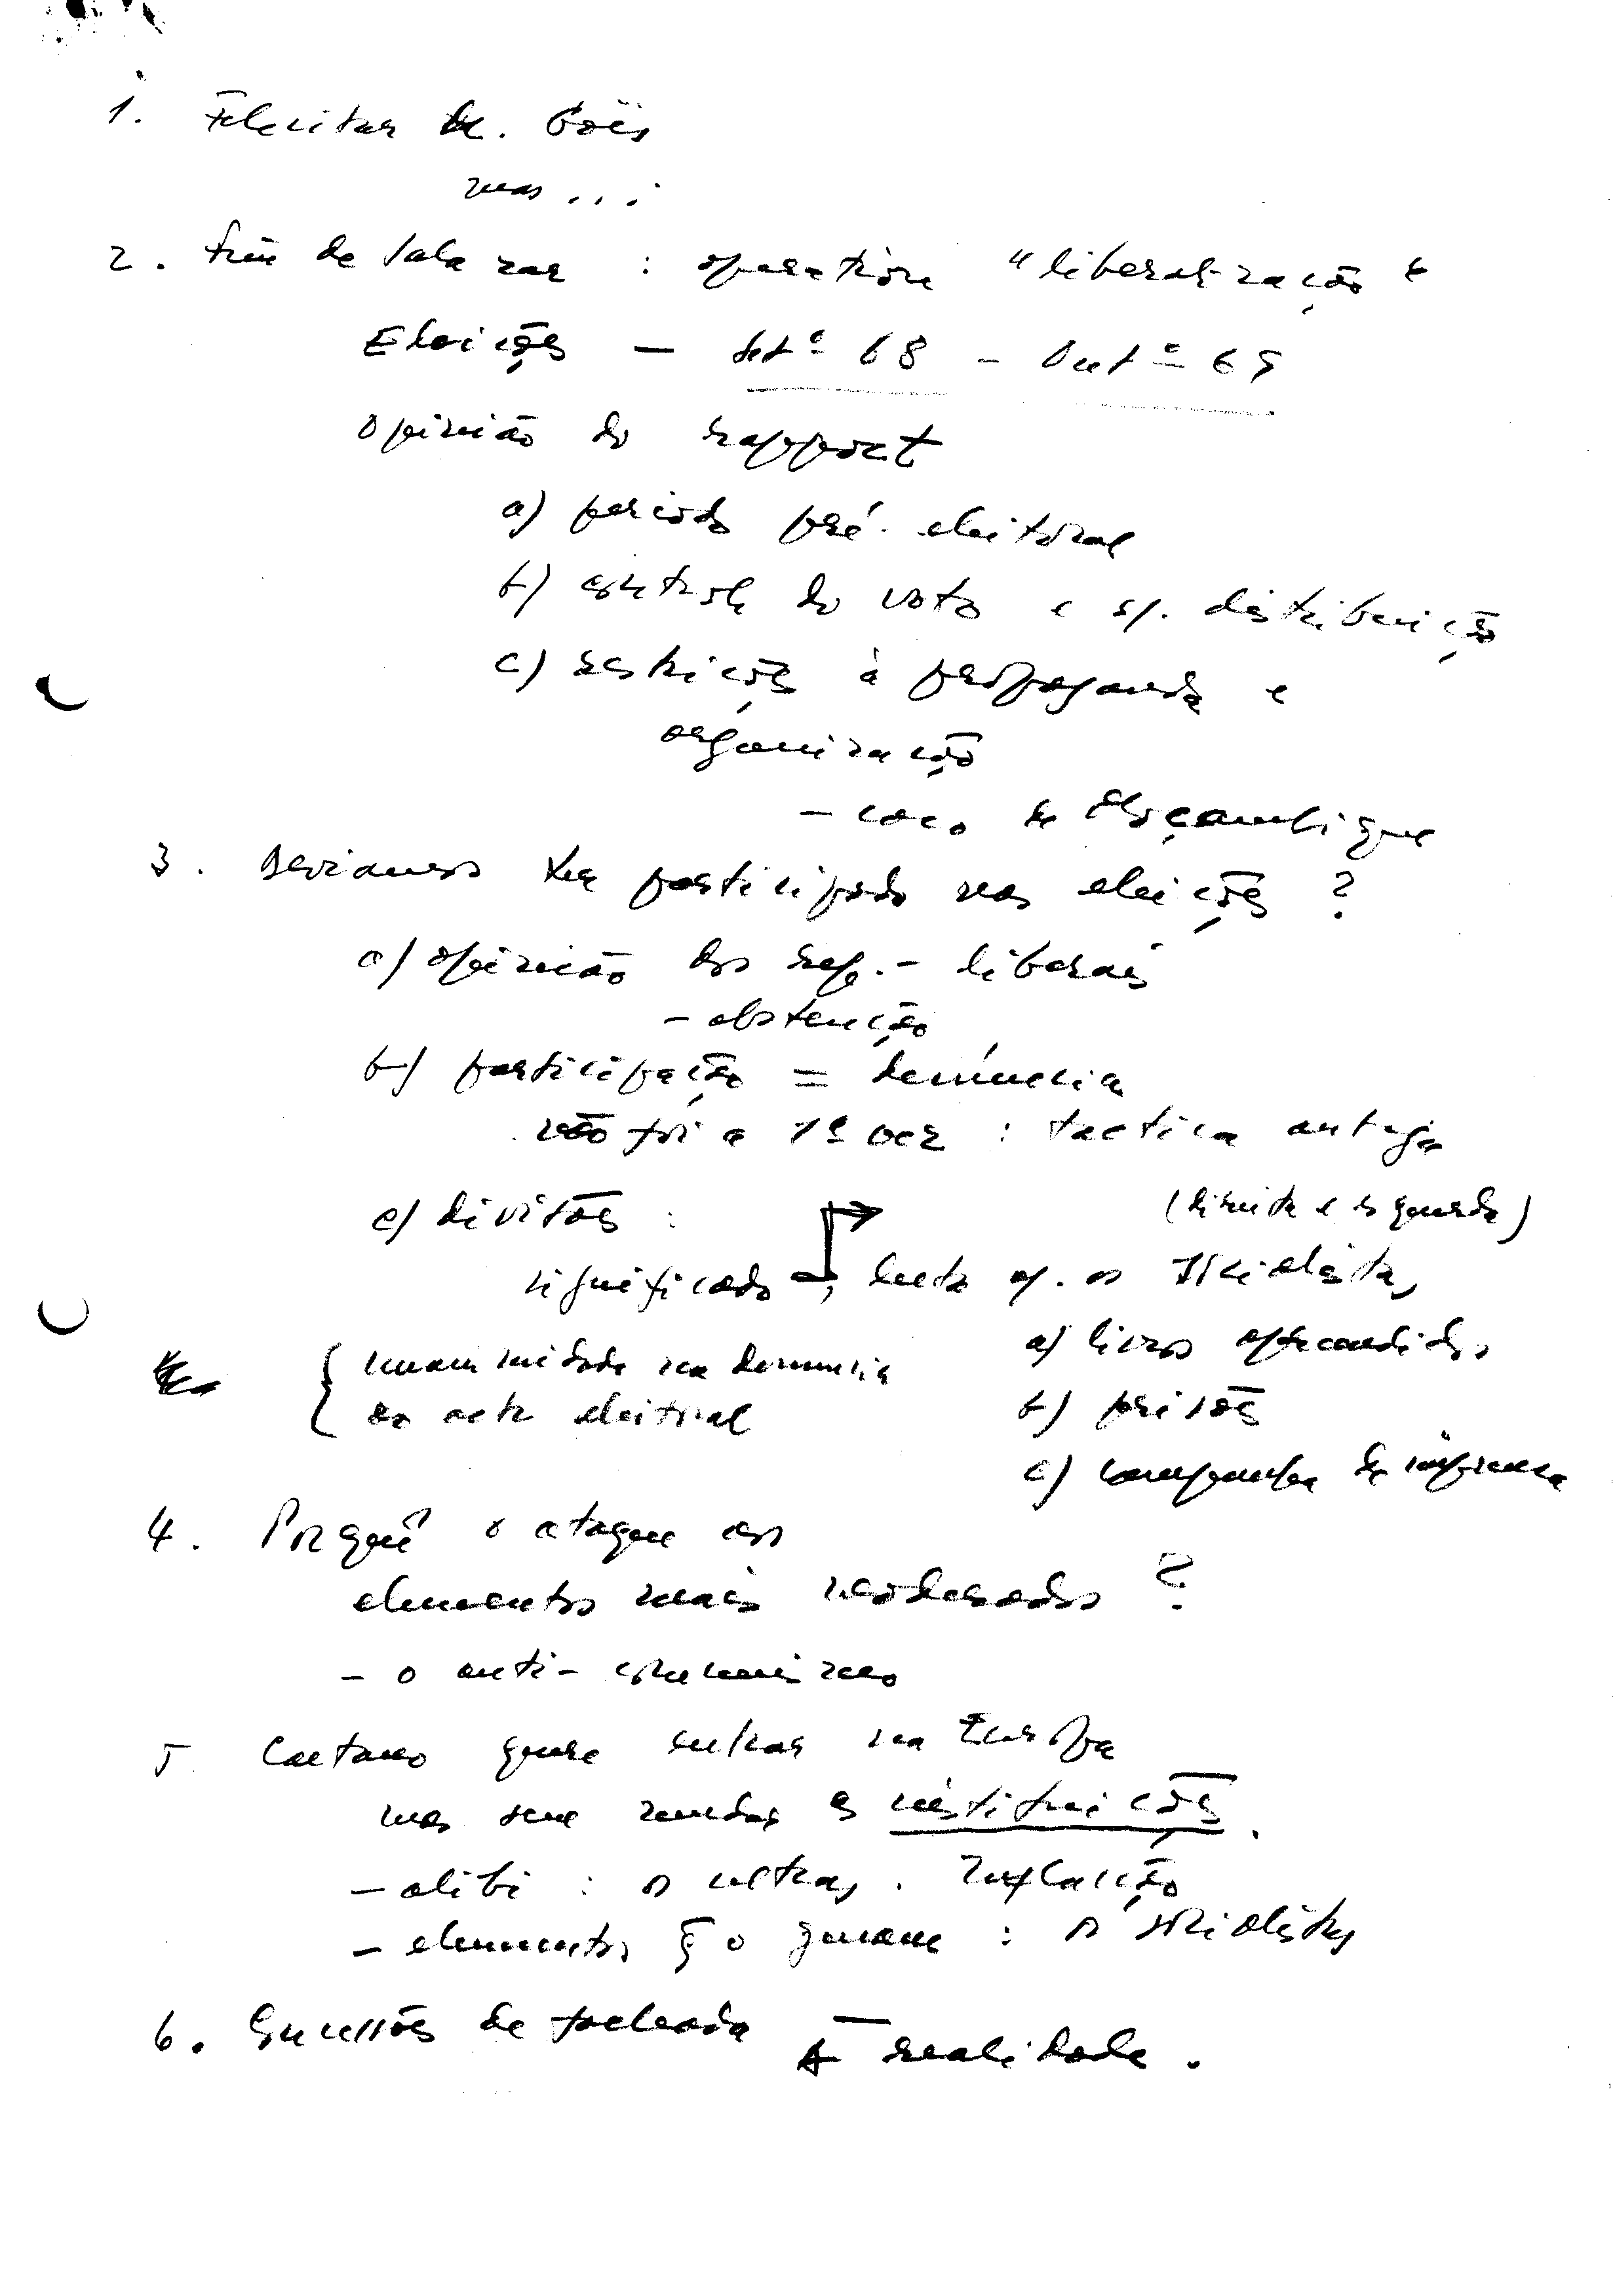 1. Felicitar M. Goës
mas ...
2. Fim de Salazar : operation "liberalização"
Eleições — Setº 68 - Outº 69
Opinião do rapport
a) período pré-eleitoral
b) controle do voto e sp. distribuição
c) restrições à propaganda e
organização
- caso de Moçambique
3. Deviamos ter participado nas eleições ?
a) opinião dos rep. - liberais
- abstenção
b) participação = denúncia
não foi a 1ª vez : tactica antiga
c) divisões :
(direita e esquerda)
significado → luta op. os Socialistas
a) livros apreendidos
{ unanimidade na denuncia
do acto eleitoral
b) prisões
c) campanha de imprensa
4. Porquê o ataque aos
elementos mais moderados ?
- o anti-comunismo
5 Caetano quere entrar na Europa
mas sem mudar as instituições.
- alibi : os ultras. Inflacção
- elementos q̃ o gênam : os socialistas
6. Questões de fachada ≠ realidade.